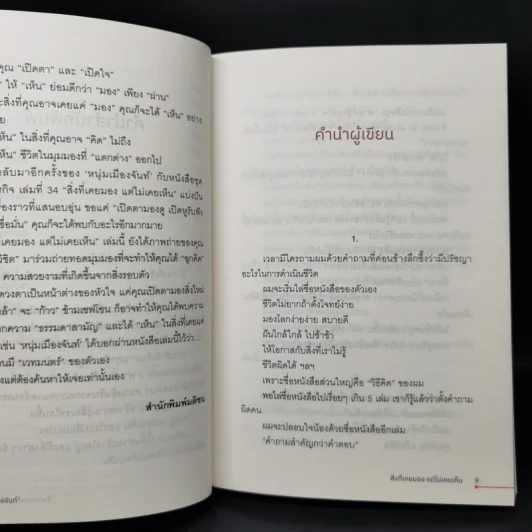 คุณ "เปิดตา" และ "เปิดใจ"
ให้ "เห็น" ย่อมดีกว่า "มอง" เพียง "ผ่าน"
สิ่งที่คุณอาจเคยแค่ "มอง" คุณก็จะได้ "เห็น" อย่าง
"เห็น" ในสิ่งที่คุณอาจ "คิด" ไม่ถึง
"เห็น" ชีวิตในมุมมองที่ "แตกต่าง" ออกไป
กลับมาอีกครั้งของ 'หนุ่มเมืองจันท์' กับหนังสือชุด
เล่มที่ 34 "สิ่งที่เคยมอง แต่ไม่เคยเห็น" แบ่งปัน
เรื่องราวที่แสนอบอุ่น ขอแค่ "เปิดตามองดู เปิดหูรับฟัง
เชื่อมั่น" คุณก็จะได้พบกับอะไรอีกมากมาย
เคยมอง แต่ไม่เคยเห็น" เล่มนี้ ยังได้ภาพถ่ายของคุณ
มาร่วมถ่ายทอดมุมมองที่จะทำให้คุณได้ "ฉุกคิด"
ความสวยงามที่เกิดขึ้นจากสิ่งรอบตัว
ดวงตาเป็นหน้าต่างของหัวใจ แค่คุณเปิดตามองสิ่งใหม่
จะ "ก้าว" ข้ามเซฟโซน ก็อาจทำให้คุณได้พบความ
ความ "ธรรมดาสามัญ" และได้ "เห็น" ในสิ่งที่เคยแค่
เช่น 'หนุ่มเมืองจันท์' ได้บอกผ่านหนังสือเล่มนี้ไว้ว่า...
มี "เวทมนตร์" ของตัวเอง
แต่ต้องค้นหาให้เจอเท่านั้นเอง
สำนักพิมพ์มติชน
คำนำผู้เขียน
1.
เวลามีใครถามผมด้วยคำถามที่ค่อนข้างลึกซึ้งว่ามีปรัชญา
อะไรในการดำเนินชีวิต
ผมจะเริ่มไล่ชื่อหนังสือของตัวเอง
ชีวิตไม่ยากถ้าตั้งโจทย์ง่าย
มองโลกง่ายง่าย สบายดี
ฝันใกล้ใกล้ ไปช้าช้า
ให้โอกาสกับสิ่งที่เราไม่รู้
ชีวิตผิดได้ ฯลฯ
เพราะชื่อหนังสือส่วนใหญ่คือ "วิธีคิด" ของผม
พอไล่ชื่อหนังสือไปเรื่อยๆ เกิน 5 เล่ม เขาก็รู้แล้วว่าตั้งคำถาม
ผิดคน
ผมจะปลอบใจน้องด้วยชื่อหนังสืออีกเล่ม
"คำถามสำคัญกว่าคำตอบ"
สิ่งที่เคยมอง แต่ไม่เคยเห็น 9